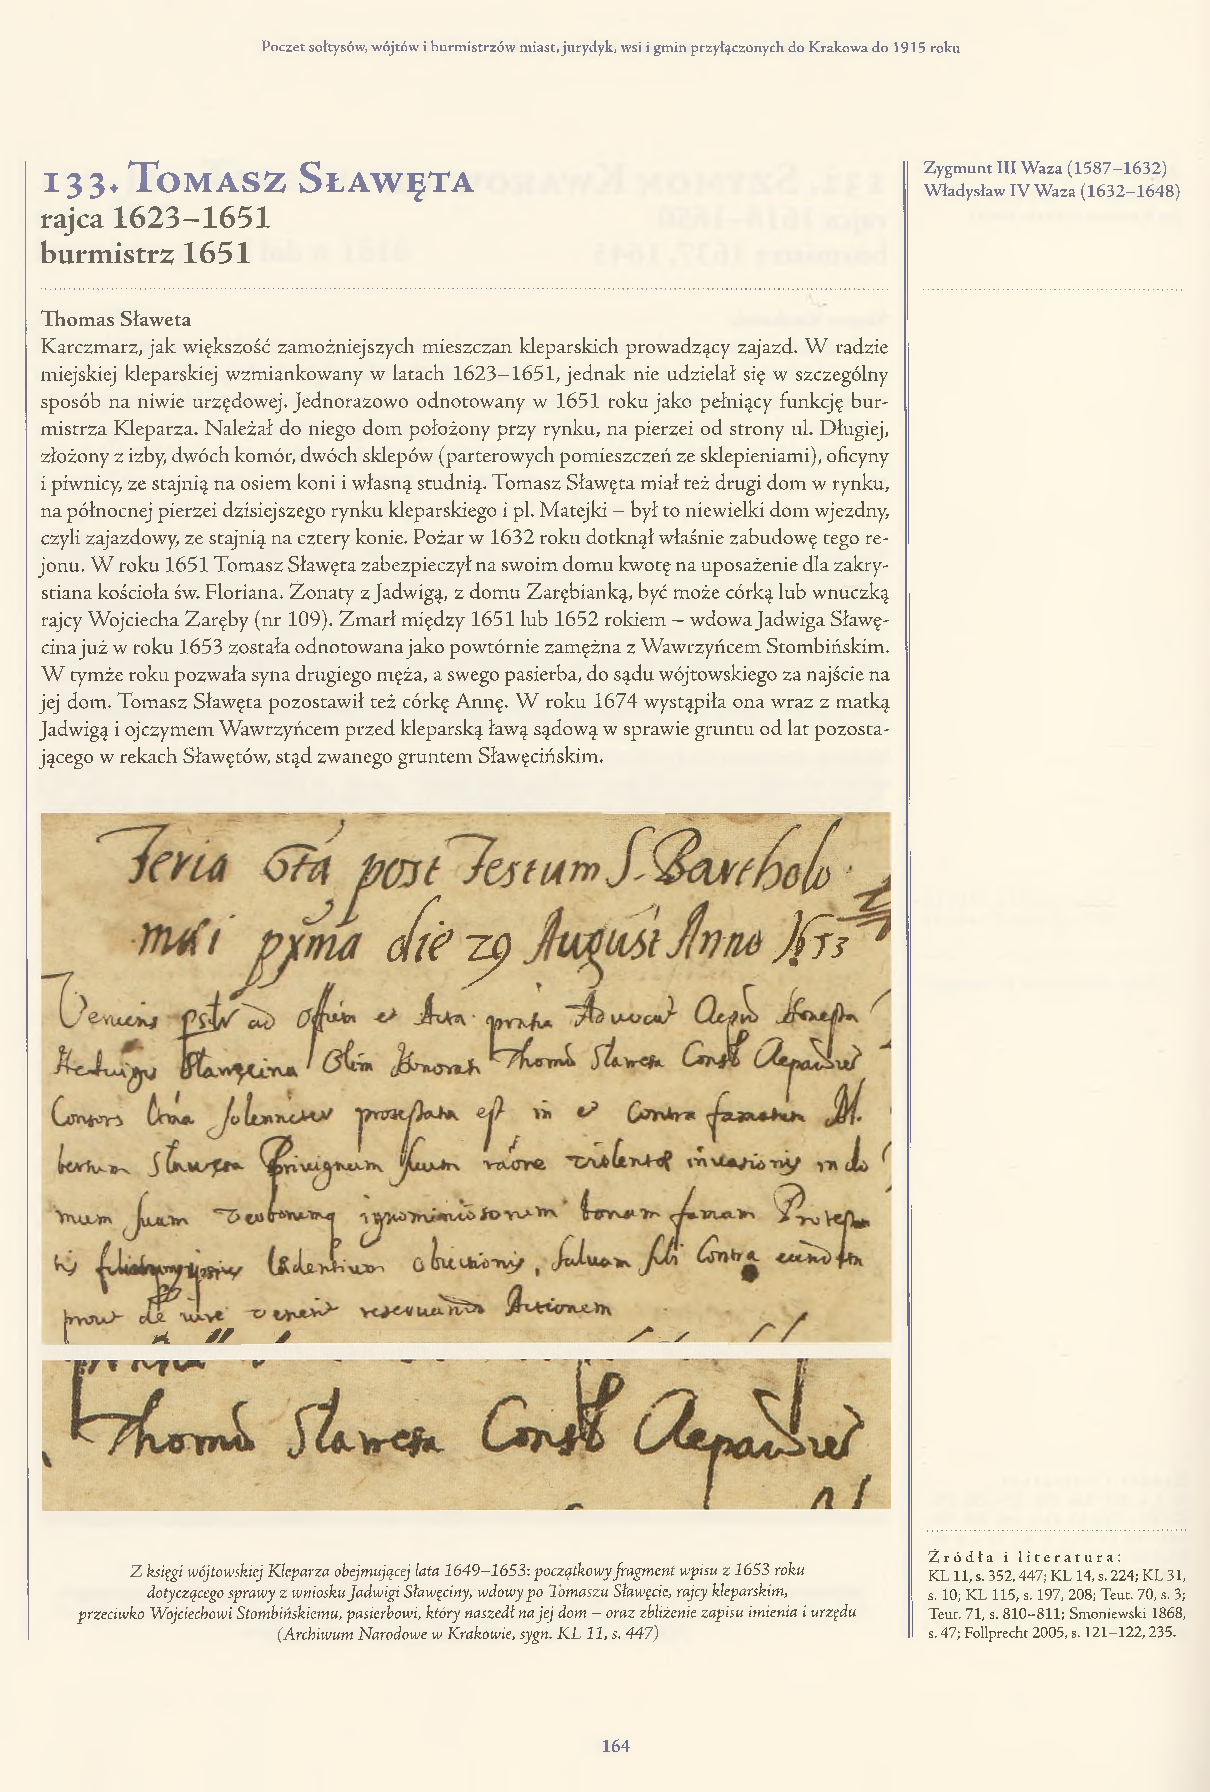 Poczet sołtysów, wójtów i burmistrzów miast, jurydyk, wsi i gmin przyłączonych do Krakowa do 1915 roku
133. Tomasz Sławęta
rajca 1623–1651
burmistrz 1651
Zygmunt III Waza (1587–1632)
Władysław IV Waza (1632–1648)
Thomas Sławeta
Karczmarz, jak większość zamożniejszych mieszczan kleparskich prowadzący zajazd. W radzie
miejskiej kleparskiej wzmiankowany w latach 1623–1651, jednak nie udzielał się w szczególny
sposób na niwie urzędowej. Jednorazowo odnotowany w 1651 roku jako pełniący funkcję bur-
mistrza Kleparza. Należał do niego dom położony przy rynku, na pierzei od strony ul. Długiej,
złożony z izby, dwóch komór, dwóch sklepów (parterowych pomieszczeń ze sklepieniami), oficyny
i piwnicy, ze stajnią na osiem koni i własną studnią. Tomasz Sławęta miał też drugi dom w rynku,
na północnej pierzei dzisiejszego rynku kleparskiego i pl. Matejki – był to niewielki dom wjezdny,
czyli zajazdowy, ze stajnią na cztery konie. Pożar w 1632 roku dotknął właśnie zabudowę tego re-
jonu. W roku 1651 Tomasz Sławęta zabezpieczył na swoim domu kwotę na uposażenie dla zakry-
stiana kościoła św. Floriana. Żonaty z Jadwigą, z domu Zarębianką, być może córką lub wnuczką
rajcy Wojciecha Zaręby (nr 109). Zmarł między 1651 lub 1652 rokiem – wdowa Jadwiga Sławę-
cina już w roku 1653 została odnotowana jako powtórnie zamężna z Wawrzyńcem Stombińskim.
W tymże roku pozwała syna drugiego męża, a swego pasierba, do sądu wójtowskiego za najście na
jej dom. Tomasz Sławęta pozostawił też córkę Annę. W roku 1674 wystąpiła ona wraz z matką
Jadwigą i ojczymem Wawrzyńcem przed kleparską ławą sądową w sprawie gruntu od lat pozosta-
jącego w rekach Sławętów, stąd zwanego gruntem Sławęcińskim.
Feria 6ta post Festum S. Bartholo
maei die 29 August Anno 1653
Veniens ad et Acta Honesta
Olim Thomae Slaweta
Consors solenniter protestata est in et Contra
Privignum suum violentae invasionis in do
mum suam bonam famam
obiectionis, salvam sibi Contra
de iure Actionem
Thomae Slaweta
Z księgi wójtowskiej Kleparza obejmującej lata 1649–1653: początkowy fragment wpisu z 1653 roku
dotyczącego sprawy z wniosku Jadwigi Sławęciny, wdowy po Tomaszu Sławęcie, rajcy kleparskim,
przeciwko Wojciechowi Stombińskiemu, pasierbowi, który naszedł na jej dom – oraz zbliżenie zapisu imienia i urzędu
(Archiwum Narodowe w Krakowie, sygn. KL 11, s. 447)
Źródła i literatura:
KL 11, s. 352, 447; KL 14, s. 224; KL 31,
s. 10; KL 115, s. 197, 208; Teut. 70, s. 3;
Teut. 71, s. 810–811; Smoniewski 1868,
s. 47; Follprecht 2005, s. 121–122, 235.
164